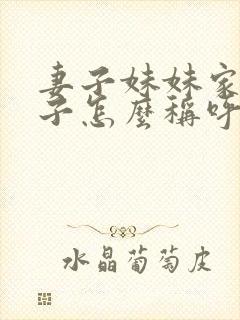 妻子妹妹家
子怎麼稱呼
水晶葡萄皮